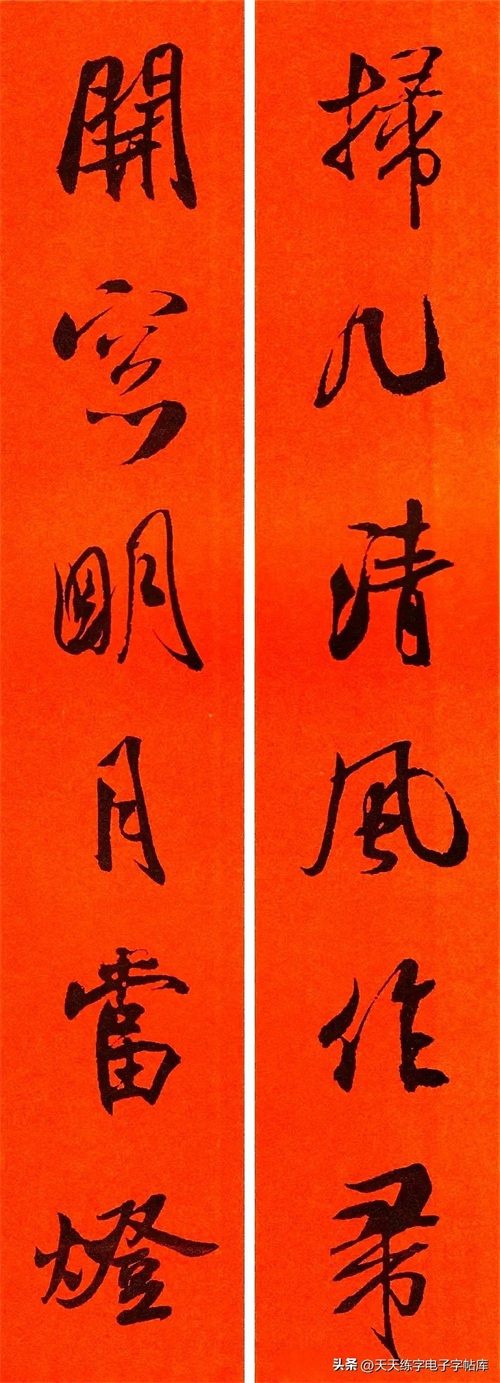 掃几清風作帚
開窓明月當燈
头条 @天天练字电子字帖库